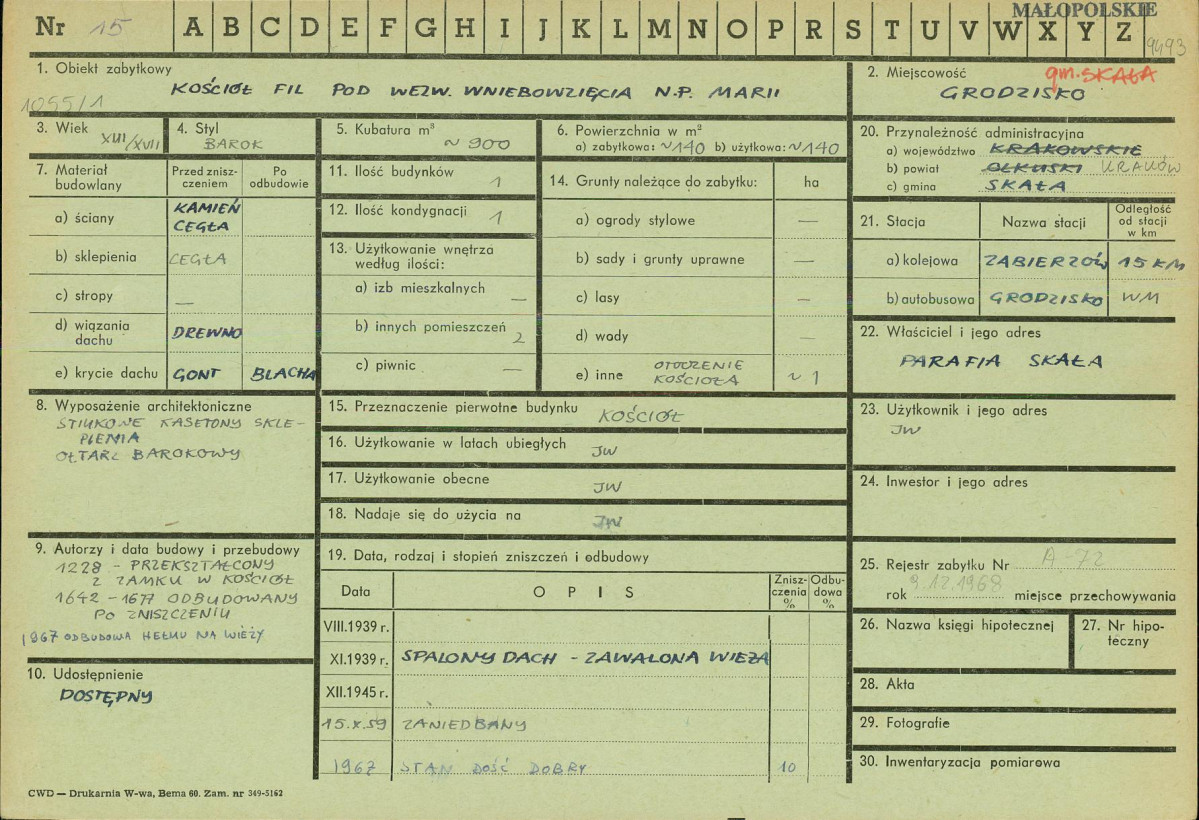 MAŁOPOLSKIE
Nr 15 A B C D E F G H I J K L M N O P R S T U V W X Y Z
9493
1. Obiekt zabytkowy
KOŚCIÓŁ FIL POD WEZW. WNIEBOWZIĘCIA N.P. MARII
1055/1
2. Miejscowość
gm. SKAŁA
GRODZISKO
3. Wiek XIII/XVII
4. Styl
BAROK
5. Kubatura m³
~ 900
6. Powierzchnia w m²
a) zabytkowa: ~140 b) użytkowa: ~140
7. Materiał budowlany
Przed zniszczeniem
Po odbudowie
a) ściany KAMIEŃ
CEGŁA
b) sklepienia CEGŁA
c) stropy —
d) wiązania dachu DREWNO
e) krycie dachu GONT BLACHA
8. Wyposażenie architektoniczne
STIUKOWE KASETONY SKLE-
PIENIA
OŁTARZ BAROKOWY
—
9. Autorzy i data budowy i przebudowy
1228 - PRZEKSZTAŁCONY
Z ZAMKU W KOŚCIÓŁ
1642 - 1677 ODBUDOWANY
PO ZNISZCZENIU
1967 ODBUDOWA HEŁMU NA WIEŻY
10. Udostępnienie
DOSTĘPNY
11. Ilość budynków
1
12. Ilość kondygnacji 1
13. Użytkowanie wnętrza
według ilości:
a) izb mieszkalnych —
b) innych pomieszczeń 2
c) piwnic —
14. Grunty należące do zabytku: ha
a) ogrody stylowe —
b) sady i grunty uprawne —
c) lasy —
d) wody —
e) inne OTOCZENIE
KOŚCIOŁA ~ 1
15. Przeznaczenie pierwotne budynku KOŚCIÓŁ
16. Użytkowanie w latach ubiegłych JW
17. Użytkowanie obecne JW
18. Nadaje się do użycia na JW
19. Data, rodzaj i stopień zniszczeń i odbudowy
Data
O P I S
Zniszczenia %
Odbudowa %
VIII.1939 r.
XI.1939 r. SPALONY DACH - ZAWALONA WIEŻA
XII.1945 r.
15.X.59 ZANIEDBANY
1967 STAN DOŚĆ DOBRY 10
20. Przynależność administracyjna
a) województwo KRAKOWSKIE
b) powiat OLKUSKI KRAKÓW
c) gmina SKAŁA
21. Stacja
Nazwa stacji
Odległość
od stacji
w km
a) kolejowa ZABIERZÓW 15 KM
b) autobusowa GRODZISKO WM
22. Właściciel i jego adres
PARAFIA SKAŁA
23. Użytkownik i jego adres
JW
24. Inwestor i jego adres
25. Rejestr zabytku Nr A-72
rok 9.12.1968 miejsce przechowywania
26. Nazwa księgi hipotecznej
27. Nr hipo-
teczny
28. Akta
29. Fotografie
30. Inwentaryzacja pomiarowa
CWD — Drukarnia W-wa, Bema 60. Zam. nr 349-5162